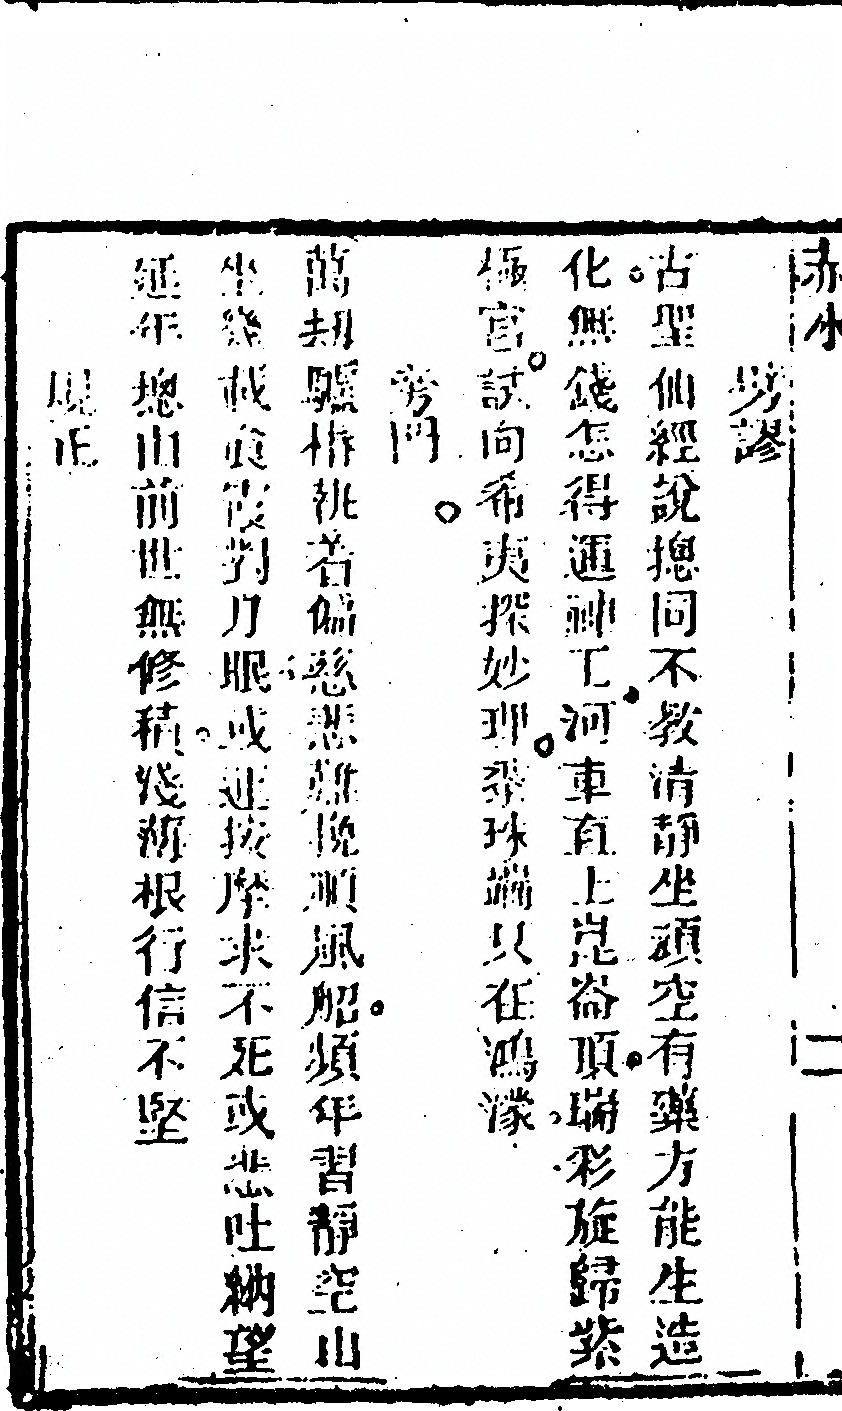 赤水
二
劈謬
古聖仙經說摠同不教清靜坐頭空有藥方能生造
化無錢怎得運神工河車直上崑崙頂瑞彩旋歸紫
極宮試向希夷探妙理黍珠端只在鴻濛
旁門
萬刼驢樁執著偏慈悲難挽順風船頻年習靜空山
坐幾載飡霞對月眠或進按摩求不死或悲吐納望
延年總由前世無修積淺薄根行信不堅
現正